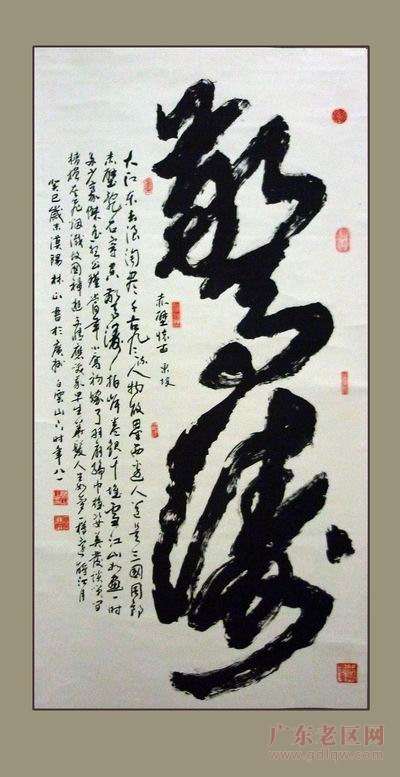 驚濤
赤壁怀古 東坡
大江东去浪淘尽千古风流人物故垒西边人道是三國周郎
赤壁乱石穿空驚濤拍岸卷起千堆雪江山如画一时
多少豪傑遥想公瑾當年小喬初嫁了羽扇綸巾雄姿英發談笑间
樯橹灰飞烟滅故國神遊多情應笑我早生華髮人生如夢一樽還酹江月
癸巳歲末漢陽林山書於廣州白雲山下时年八一
广东老区网
www.gdlqw.com